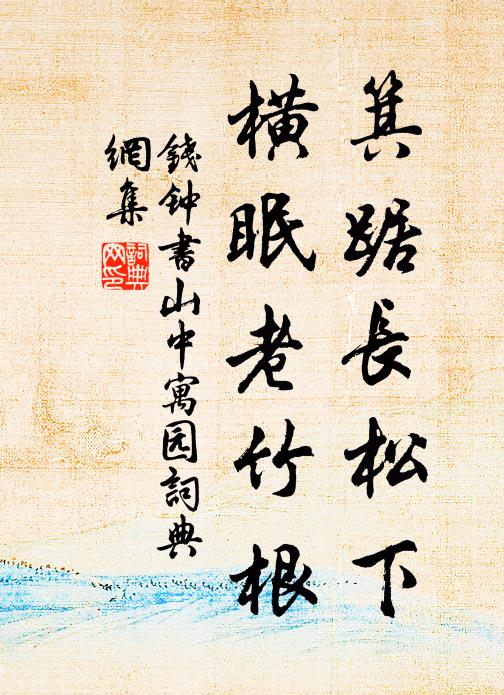 箕踞長松下
橫眠老竹根
錢钟書山中寓园詞典
網集
詞典网印